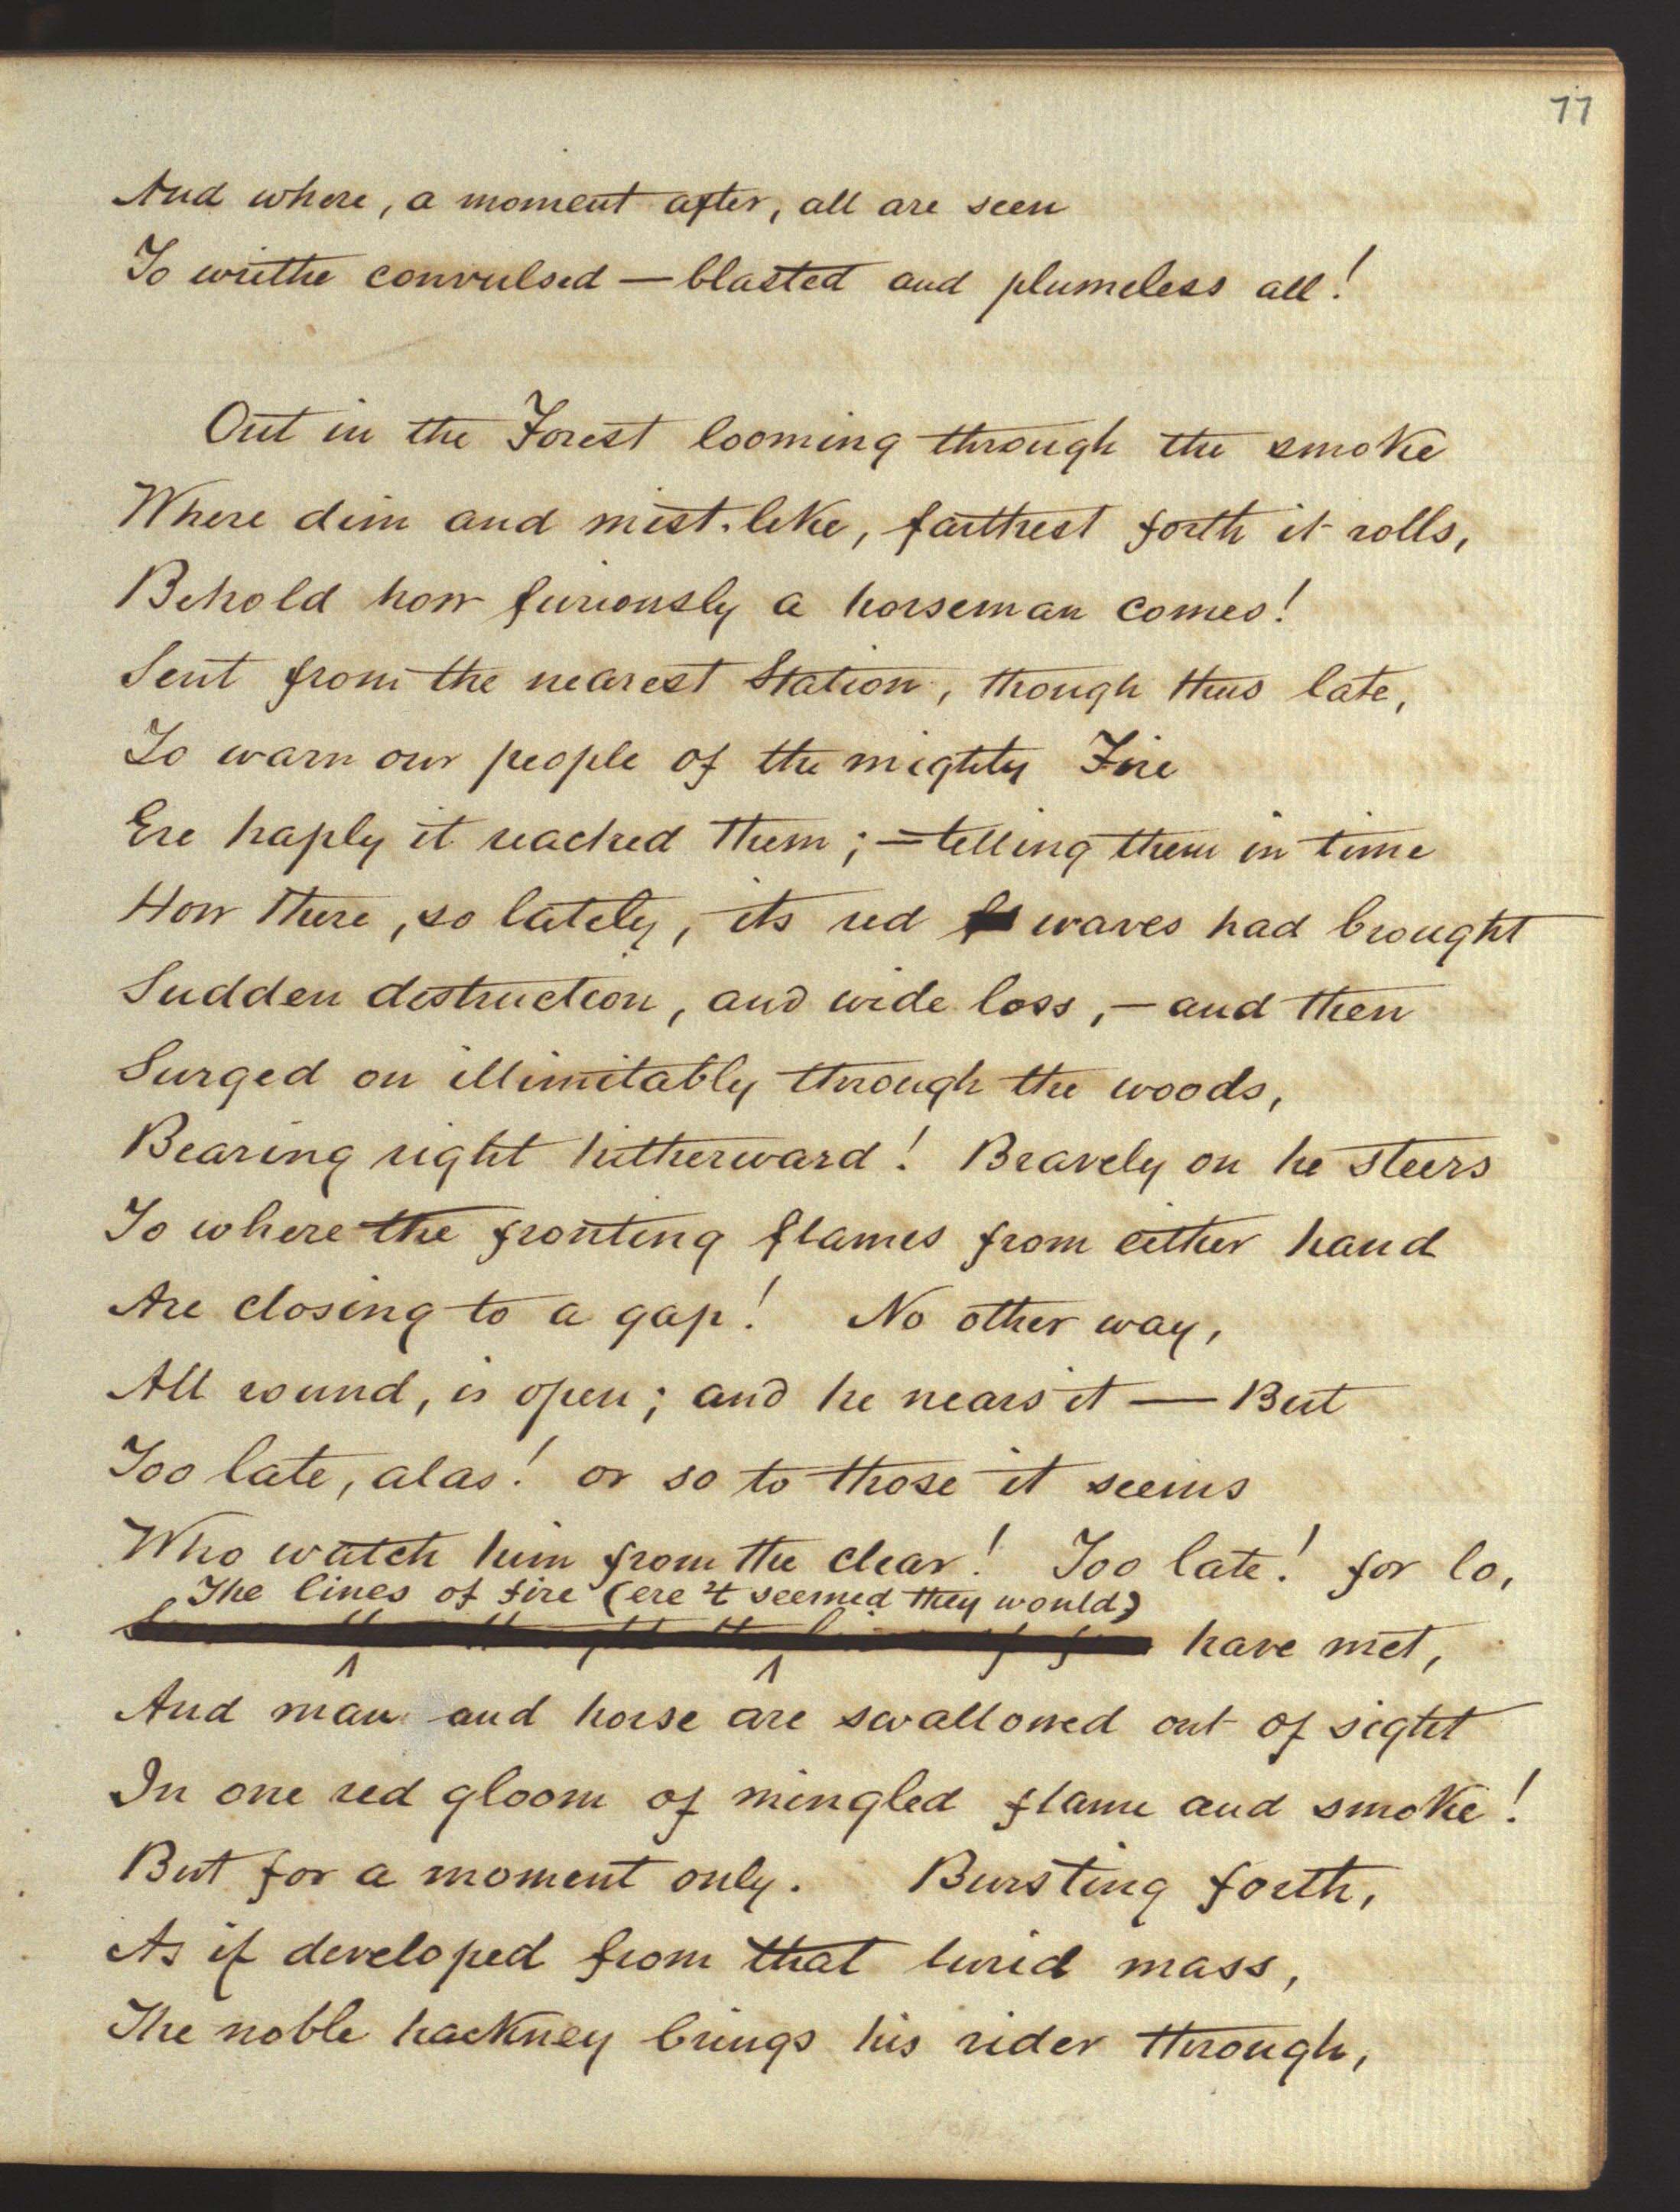 77
And where, a moment after, all are seen
To writhe convulsed — blasted and plumeless all!
Out in the Forest looming through the smoke
Where dim and mist-like, farthest forth it rolls,
Behold how furiously a horseman comes!
Sent from the nearest Station, though thus late,
To warn our people of the mighty Fire
Ere haply it reached them; — telling them in time
How there, so lately, its red waves had brought
Sudden destruction, and wide loss, — and then
Surged on illimitably through the woods,
Bearing right hitherward! Bravely on he steers
To where the fronting flames from either hand
Are closing to a gap! No other way,
All round, is open; and he nears it — But
Too late, alas! or so to those it seems
Who watch him from the clear! Too late! for lo,
The lines of fire (ere 't seemed they would)
have met,
And man and horse are swallowed out of sight
In one red gloom of mingled flame and smoke!
But for a moment only. Bursting forth,
As if developed from that lurid mass,
The noble hackney brings his rider through,